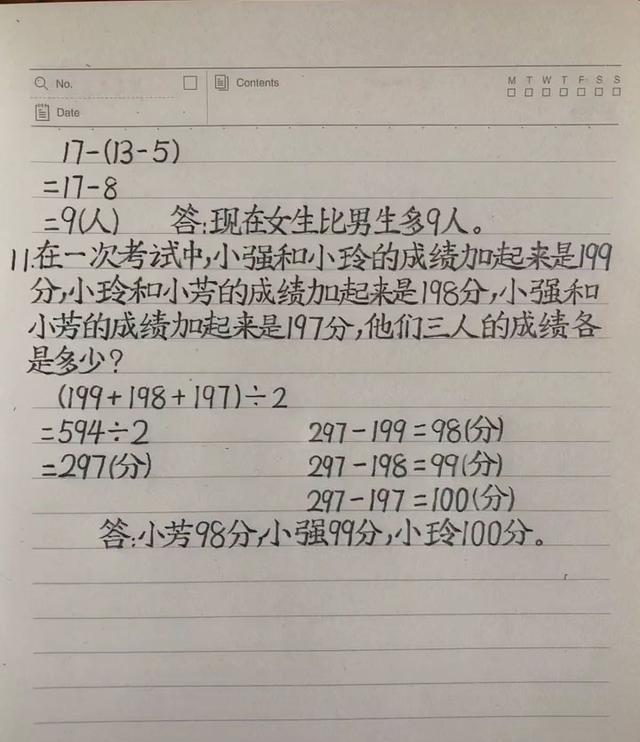 No.
Contents
M T W T F S S
Date
17-(13-5)
=17-8
=9(人) 答:现在女生比男生多9人。
11.在一次考试中,小强和小玲的成绩加起来是199
分,小玲和小芳的成绩加起来是198分,小强和
小芳的成绩加起来是197分,他们三人的成绩各
是多少?
(199+198+197)÷2
=594÷2 297-199=98(分)
=297(分) 297-198=99(分)
297-197=100(分)
答:小芳98分,小强99分,小玲100分。